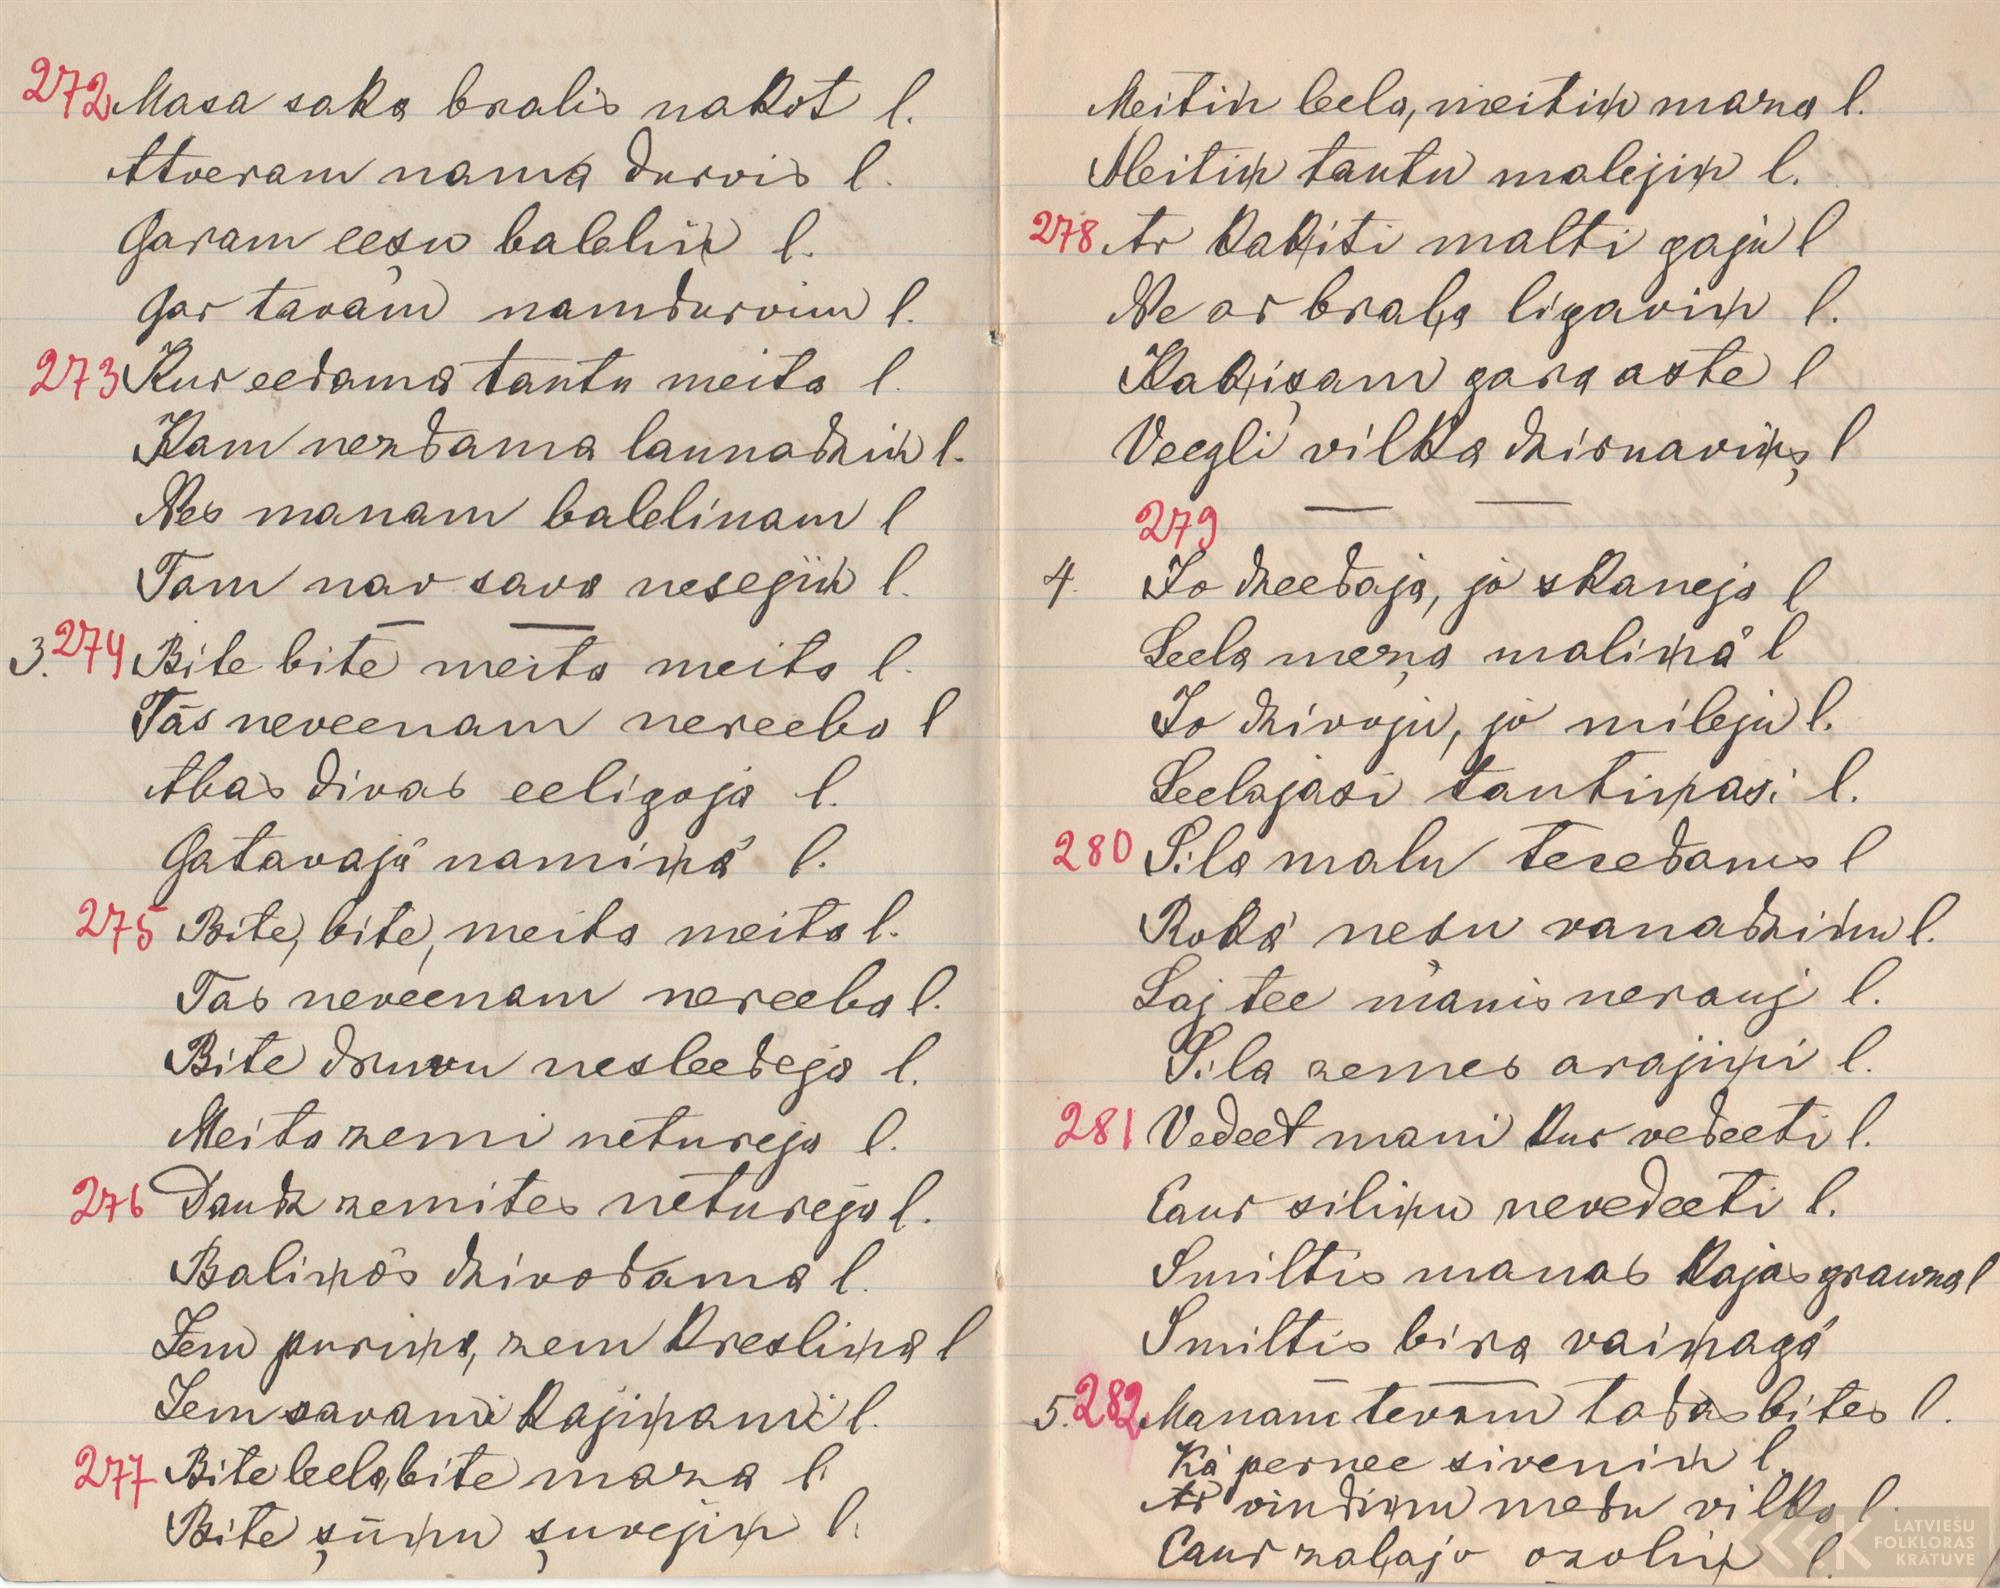 272 Masa saka bralis nakot l.
Atveram nama durvis l.
Garam eeşu balelin̨ l.
Gar tavam namdurvim l.
273 Kur eedama tautu meita l.
Kam nezdama launadzin̨ l.
Nes manam balelinam l
Tam nav sava nesejin̨ l.
3. 274 Bite bite meita meita l.
Tās neveenam nereeba l
Abas divas eeligoja l.
Gatavajā namin̨ā l.
275 Bite, bite, meita meita l.
Tas neveenam nereeba l.
Bite druvu nesleedeja l.
Meita zemi netureja l.
276 Daudz zemites netureja l.
Balin̨ōs dzivodama l.
Zem purin̨a, zem kreslin̨a l
Zem savami kajin̨ami l.
277 Bite leela, bite maza l.
Bite şūn̨u şuvejin̨ l.
Meitin leela, meitin̨ maza l.
Meitin̨ tautu malejin̨ l.
278 Ar kak̨iti malti gaju l
Ne ar bral̨a ligavin̨ l.
Kak̨işam gara aste l
Veegli vilka dzirnavin̨ş l
279
4. Jo dzeedaja, jo skaneja l
Leela meza malin̨ā l
Jo dzivoju, jo mileju l.
Leelajasi tautin̨asi l.
280 Sila malu tecedams l
Rokā nesu vanadzin̨u l.
Laj tee manis nerauj l.
Sila zemes arajin̨i l.
281 Vedeet mani kur vedeeti l.
Caur silin̨u nevedeeti l.
Smiltis manas kajas grauza l
Smiltis bira vain̨agā
5. 282 Manam tevam tadas bites l.
Kā pernee sivenin̨ l.
Ar vindin̨u medu vilka l.
Caur zal̨ajo ozolin̨ l.
LATVIEŠU
FOLKLORAS
KRĀTUVE